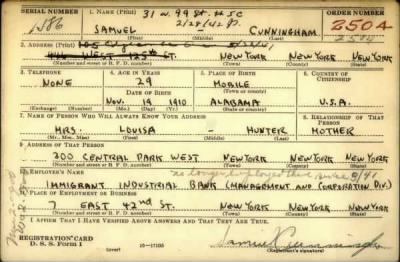 SERIAL NUMBER
1. NAME (Print) 31 W. 99 St. N.Y.C
2/28/42
ORDER NUMBER
1586
SAMUEL CUNNINGHAM
2504
(First) (Middle) (Last)
2. ADDRESS (Print)
WEST 125th ST. NEW YORK NEW YORK NEW YORK
(Number and street or R. F. D. number) (Town) (County) (State)
3. TELEPHONE
4. AGE IN YEARS
5. PLACE OF BIRTH
6. COUNTRY OF CITIZENSHIP
NONE
29
MOBILE
DATE OF BIRTH
(Town or county)
Nov. 19 1910
ALABAMA
U.S.A.
(Exchange) (Number)
(Mo.) (Day) (Yr.)
(State or country)
7. NAME OF PERSON WHO WILL ALWAYS KNOW YOUR ADDRESS
8. RELATIONSHIP OF THAT PERSON
MRS. LOUISA HUNTER
MOTHER
(Mr., Mrs., Miss) (First) (Middle) (Last)
9. ADDRESS OF THAT PERSON
300 CENTRAL PARK WEST NEW YORK NEW YORK NEW YORK
(Number and street or R. F. D. number) (Town) (County) (State)
10. EMPLOYER'S NAME
no longer employed there since /41
IMMIGRANT INDUSTRIAL BANK (MANAGEMENT AND CORPORATION DIV.)
11. PLACE OF EMPLOYMENT OR BUSINESS
7 EAST 42nd ST. NEW YORK NEW YORK NEW YORK
(Number and street or R. F. D. number) (Town) (County) (State)
I AFFIRM THAT I HAVE VERIFIED ABOVE ANSWERS AND THAT THEY ARE TRUE.
REGISTRATION CARD
D. S. S. Form 1
(over)
16—17105
Samuel Cunningham